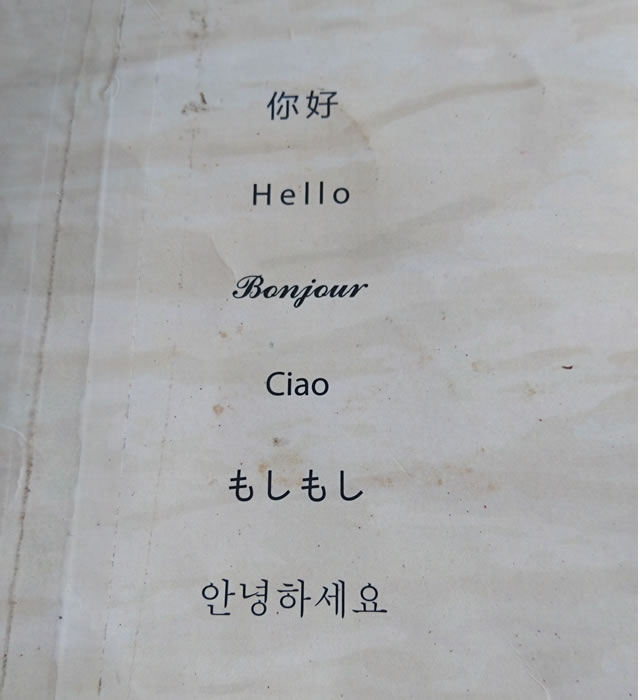 你好
Hello
Bonjour
Ciao
もしもし
안녕하세요